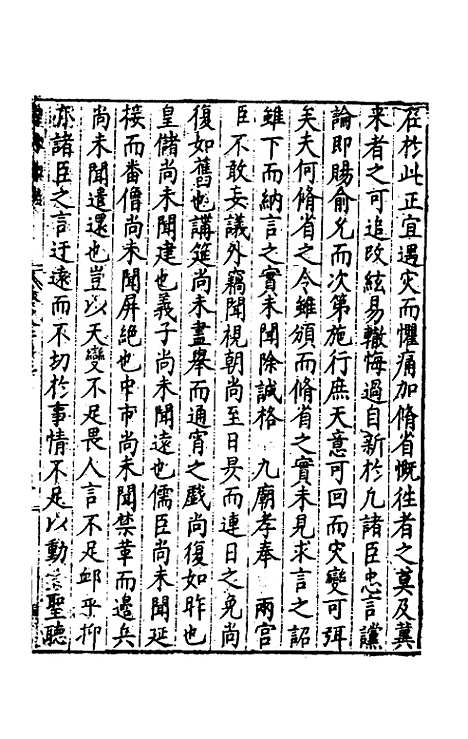 在於此正宜遇灾而懼痛加脩省慨往者之莫及冀
来者之可追改絃易轍悔過自新於凡諸臣忠言讜
論即賜俞允而次第施行庶天意可回而灾變可弭
矣夫何脩省之令雖頒而脩省之實未見求言之詔
雖下而納言之實未聞除誠格 九廟孝奉 兩宫
臣不敢妄議外竊聞視朝尚至日昃而連日之免尚
復如舊也講筵尚未盡舉而通宵之戲尚復如昨也
皇儲尚未聞建也義子尚未聞遠也儒臣尚未聞延
接而畨僧尚未聞屏絶也中市尚未聞禁革而邉兵
尚未聞遣還也豈以天變不足畏人言不足邮乎抑
亦諸臣之言迂遠而不切於事情不足以動 聖聽